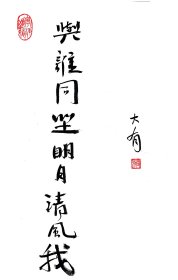 與誰同坐明月清風我
大有